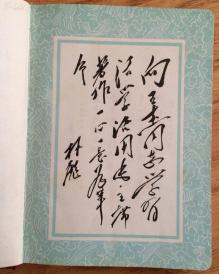 向王杰同志学习
活学活用毛主席
著作一心一意为革
命
林彪